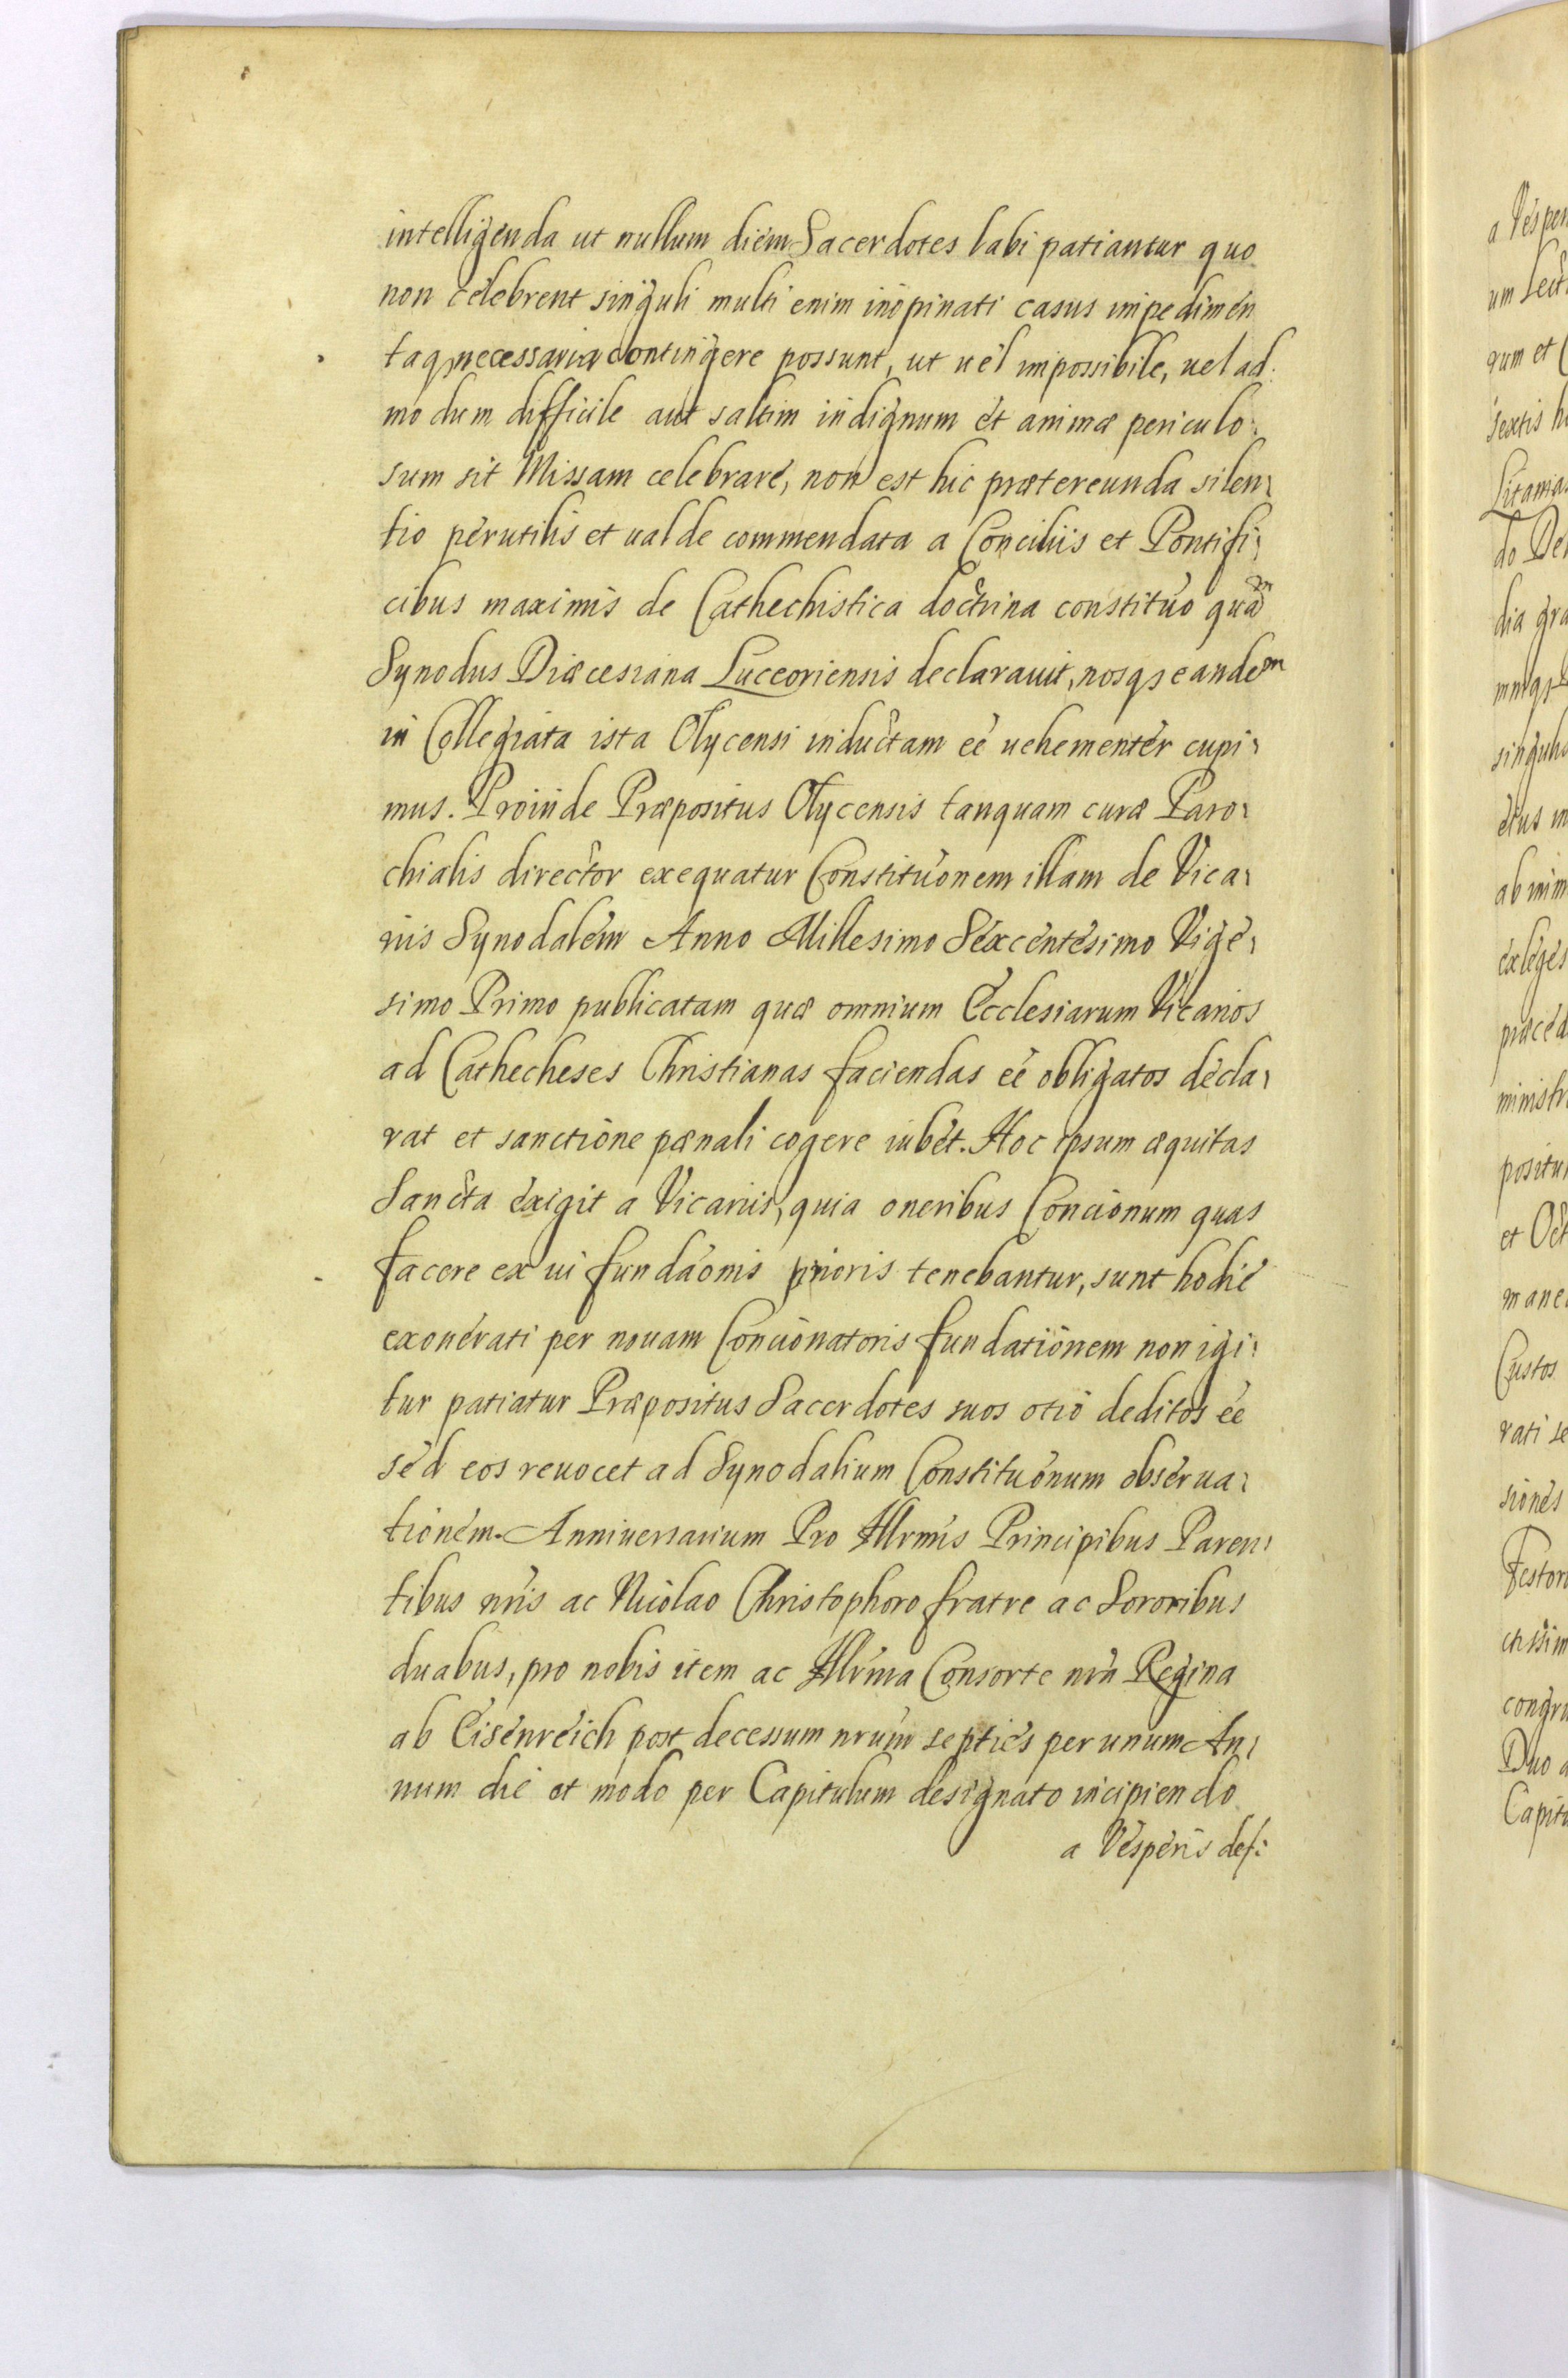 intelligenda ut nullum diem Sacerdotes labi patiantur quo
non celebrent singuli multi enim inopinati casus impedimen
taq necessaria contingere possunt, ut uel impossibile, uel ad:
modum difficile aut saltim indignum et animæ periculo:
sum sit Missam celebrare, non est hic prætereunda silen:
tio perutilis et ualde commendata a Conciliis et Pontifi:
cibus maximis de Cathechistica doctrina constitúo quam
Synodus Diæcesiana Luceoriensis declarauit, nosqȝ eandem
in Collegiata ista Olycensi inductam eé uehementer cupi:
mus. Proinde Præpositus Olycensis tanquam curæ Paro:
chialis director exequatur Constitúonem illam de Vica:
riis Synodalem Anno Millesimo Sexcentesimo Vige:
simo Primo publicatam quæ omnium Ecclesiarum Vicarios
ad Cathecheses Christianas faciendas eé obligatos decla:
rat et sanctione pænali cogere iubet. Hoc ipsum æquitas
Sancta exigit a Vicariis, quia oneribus Concionum quas
facere ex ui fundáonis prioris tenebantur, sunt hodie
exonerati per nouam Concionatoris fundationem non igi:
tur patiatur Præpositus Sacerdotes suos otio deditos eé
sed eos reuocet ad Synodalium Constitúonum obserua:
tionem. Anniuersarium Pro Illrmis Principibus Paren:
tibus nris ac Nicolao Christophoro fratre ac Sororibus
duabus, pro nobis item ac Illrma Consorte nra Regina
ab Eisenreich post decessum nrum septies per unum An:
num die et modo per Capitulum designato incipiendo
a Vesperis defi:
a Vesper
um Lect
qum et
sextis h
Litania
do De
dia gra
mnqȝ
singulo
etus in
ab inim
exleges
præced
ministr
positu
et Oct
mane
Custos
rati se
siones
Festor
ctissim
congru
Duo a
Capitu